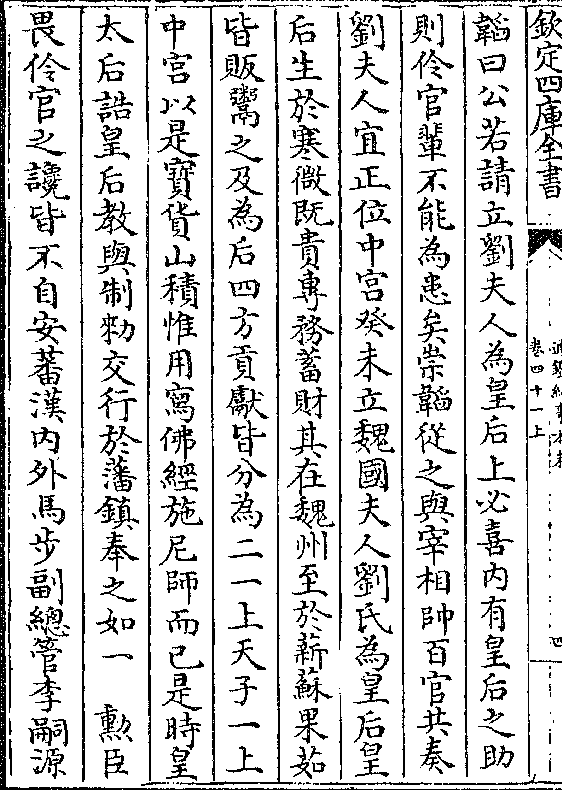 欽定四庫全書
卷四十一上
韜曰公若請立劉夫人為皇后上必喜内有皇后之助
則伶官輩不能為患矣崇韜從之與宰相帥百官共奏
劉夫人宜正位中宮癸未立魏國夫人劉氏為皇后皇
后生於寒微既貴專務蓄財其在魏州至於薪蘇果茹
皆販鬻之及為后四方貢獻皆分為二一上天子一上
中宮以是寶貨山積惟用寫佛經施尼師而已是時皇
太后誥皇后教與制勅交行於藩鎮奉之如一 勲臣
畏伶官之讒皆不自安蕃漢内外馬步副總管李嗣源